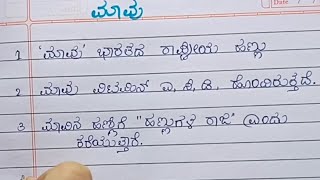 ಮಾವು
1 'ಮಾವು' ಭಾರತದ ರಾಷ್ಟ್ರೀಯ ಹಣ್ಣು
2 ಮಾವು ವಿಟಮಿನ್ ಎ, ಸಿ, ಡಿ, ಹೊಂದಿರುತ್ತದೆ.
3 ಮಾವಿನ ಹಣ್ಣಿಗೆ "ಹಣ್ಣುಗಳ ರಾಜ" ಎಂದು
ಕರೆಯುತ್ತಾರೆ.